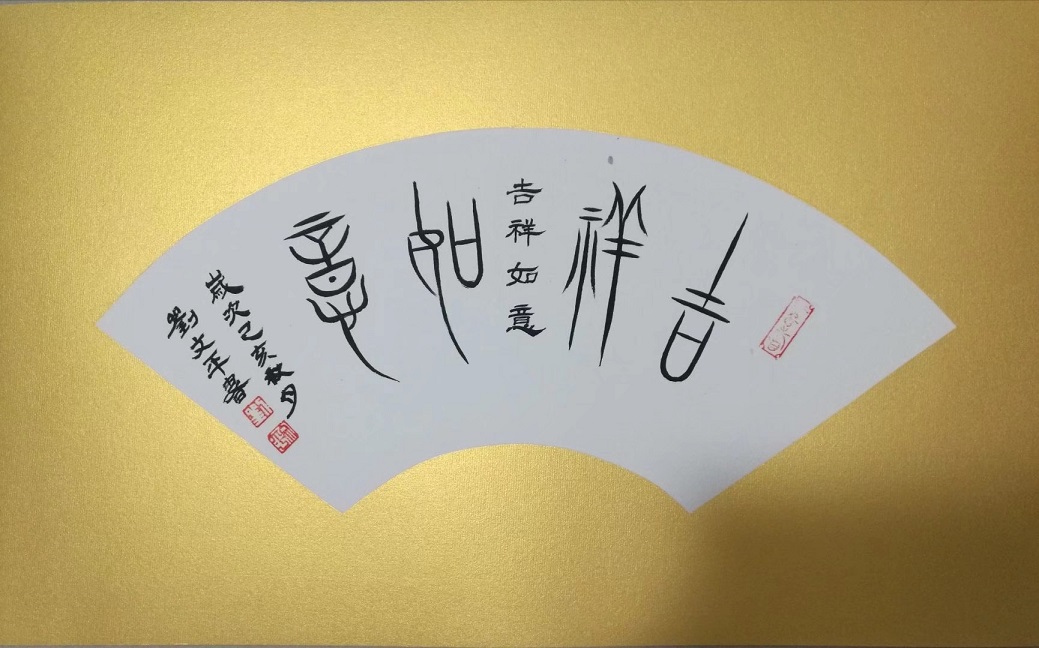 吉祥如意
吉祥如意
歲次己亥秋月
劉文平書